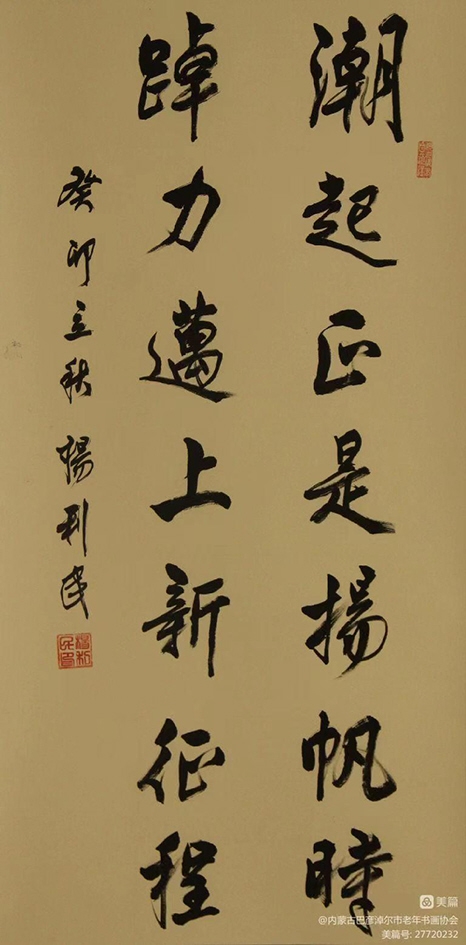 潮起正是揚帆時
踔力邁上新征程
癸卯立秋 楊利民
美篇
@内蒙古巴彦淖尔市老年书画协会
美篇号: 27720232